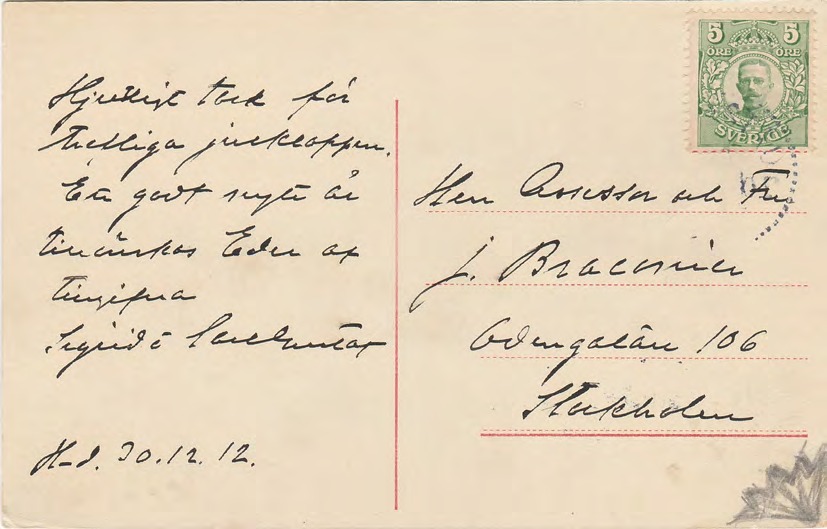 Hjertligt tack för
trefliga julklappen.
Ett godt nytt år
tillönskas Eder af
tillgifna
Sigrid & Carl Gustaf
H-d. 30.12.12.
5 5
ÖRE ÖRE
SVERIGE
Herr Assessor och Fru
J. Braconier
Odengatan 106
Stockholm